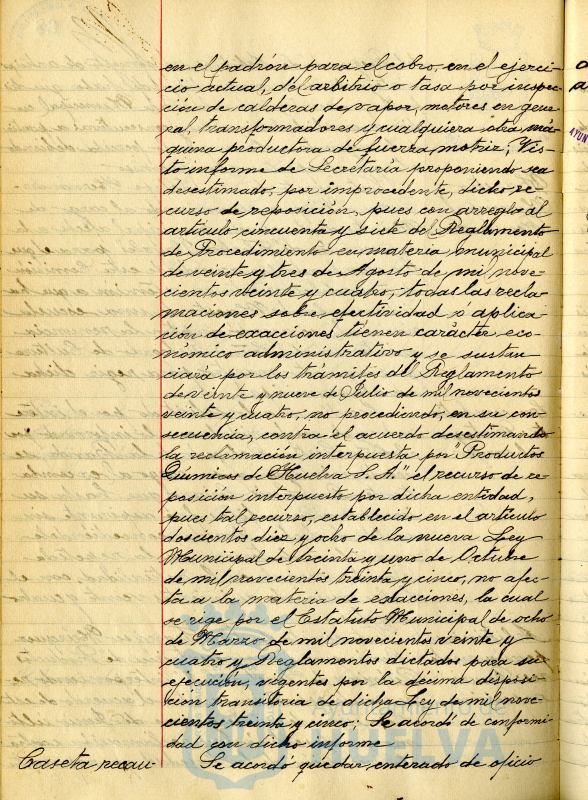 en el padrón para el cobro, en el ejerci-
cio actual, del arbitrio o tasa por inspec-
ción de calderas de vapor, motores en gene-
ral, transformadores y cualquiera otra má-
quina productora de fuerza motriz; Vis-
to informe de Secretaría proponiendo sea
desestimado, por improcedente, dicho re-
curso de reposición, pues con arreglo al
artículo cincuenta y siete del Reglamento
de Procedimiento en materia municipal
de veinte y tres de Agosto de mil nove-
cientos veinte y cuatro, todas las recla-
maciones sobre efectividad o aplica-
ción de exacciones tienen carácter eco-
nómico administrativo y se sustan-
ciará por los trámites del Reglamento
de veinte y nueve de Julio de mil novecientos
veinte y cuatro, no procediendo, en su con-
secuencia, contra el acuerdo desestimando
la reclamación interpuesta por "Productos
Químicos de Huelva S. A." el recurso de re-
posición interpuesto por dicha entidad,
pues tal recurso, establecido en el artículo
doscientos diez y ocho de la nueva Ley
Municipal de treinta y uno de Octubre
de mil novecientos treinta y cinco, no afec-
ta a la materia de exacciones, la cual
se rige por el Estatuto Municipal de ocho
de Marzo de mil novecientos veinte y
cuatro y Reglamentos dictados para su
ejecución, vigentes por la décima disposi-
ción transitoria de dicha Ley de mil nove-
cientos treinta y cinco: Se acordó de conformi-
dad con dicho informe
Caseta recau- Se acordó quedar enterado de oficio
HUELVA
AYUN